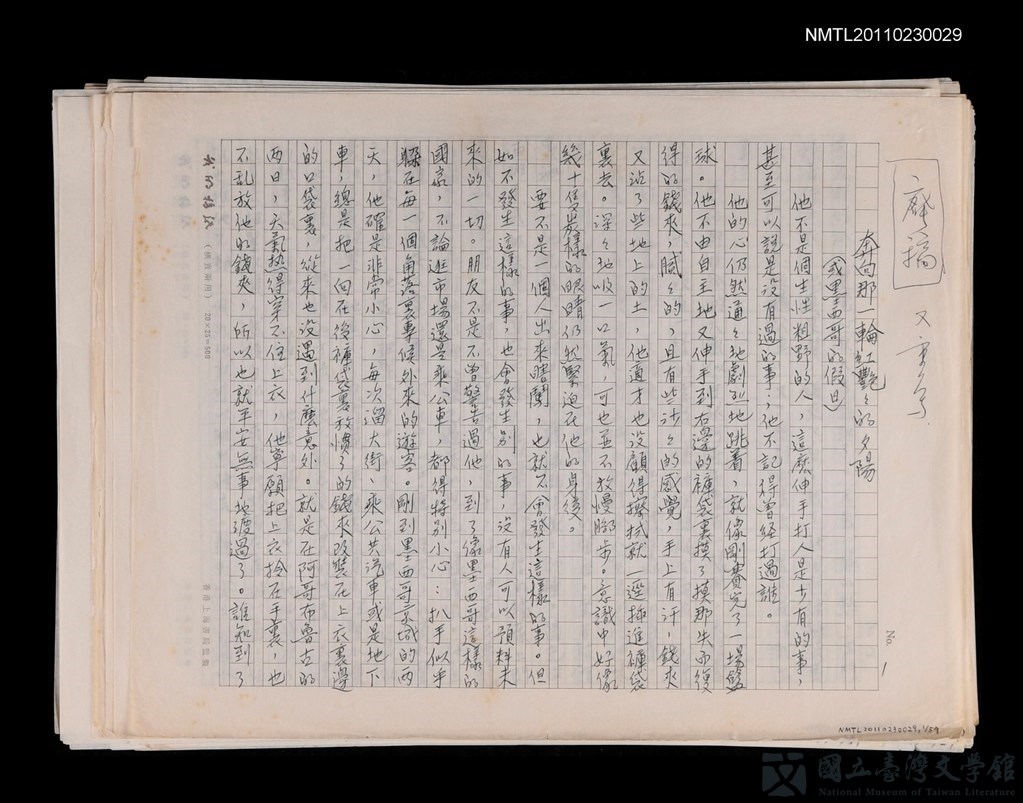 NMTL20110230029
廢稿
又重写
奔向那一輪紅艷々的夕陽
（或黑盃哥的假日）
No. 1
他不是個生性粗野的人，這麽伸手打人是少有的事，
甚至可以說是没有過的事；他不記得曾經打過誰。
他的心仍然通々地劇烈地跳着，就像剛賽完了一場籃
球。他不由自主地又伸手到右邊的褲袋裏摸了摸那失而復
得的錢夾，膩々的，且有些沙々的感覺，手上有汗，錢夾
又沾了些地上的土，他適才也没顧得擦拭就一逕揷進褲袋
裏去。深々地吸一口氣，可也並不放慢脚步。意識中好像
幾十隻炭樣的眼睛仍然緊迫在他的身後。
要不是一個人出來瞎闖，也就不會發生這樣的事。但
如不發生這樣的事，也會發生别的事，没有人可以預料未
來的一切。朋友不是不曾警告過他，到了像墨西哥這樣的
國家，不論逛市場還是乘公車，都得特别小心：扒手似乎
躲在每一個角落裏專候外來的遊客。剛到墨西哥京城的两
天，他確是非常小心，每次溜大街、乘公共汽車或是地下
車，總是把一向在後褲袋裏放慣了的錢夾改裝在上衣裏邊
的口袋裏，從來也没遇到什麽意外。就是在阿哥布魯古的
两日，天氣熱得穿不住上衣，他寧願把上衣拎在手裏，也
不亂放他的錢夾，所以也就平安無事地渡過了。誰知到了
（橫直兩用） 20×25=500
香港上海書局監製
NMTL20110230029, 1/59
國立臺灣文學館
National Museum of Taiwan Literature